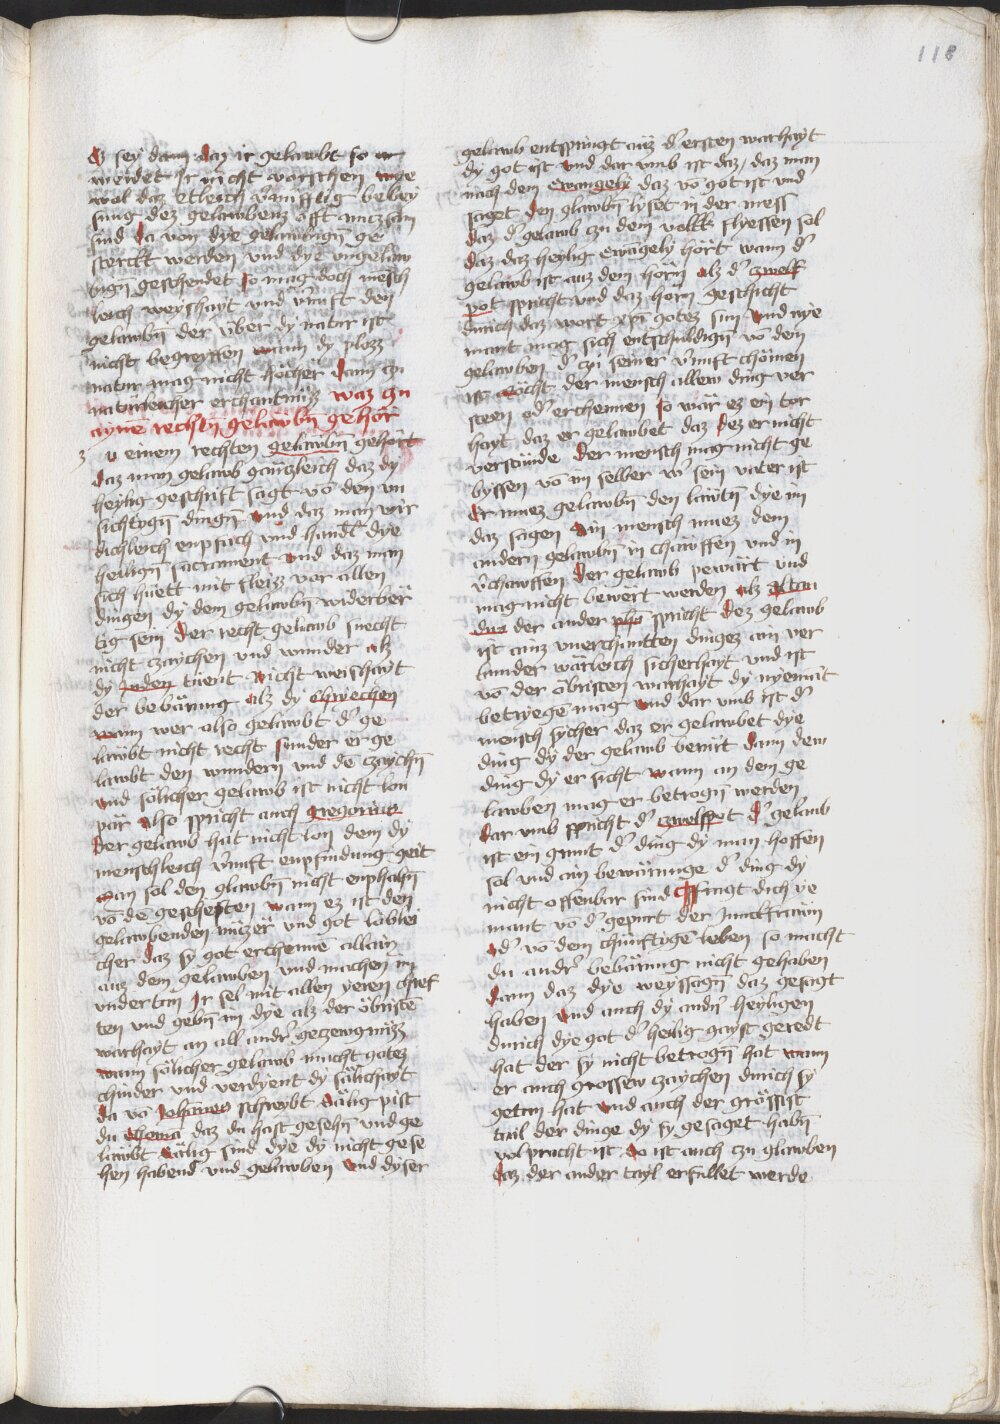 118
Ez sey dann daz ir gelawbt so ir
werdet ir nicht vorschen wye
wol daz etleich v̄nüfftig bebey
sung dez gelawbenz offt nuczsam
sind da von dye gelawbign̄ ge
sterckt werden vnd dye vngelaw
bign̄ geschendet so mag doch mēsch
leich weyshayt vnd v̄nuft den
gelawbn̄ der vber dy natur ist
nicht begreyffen wann dy plozz
natur mag nicht höcher dann czu
natürleicher erchantnüzz waz czu
ayne rechtn̄ gelawbn̄ gehör
zu einem rechten gelawbn̄ gehört
daz man gelawb gäntzleich daz dy
heylig geschrift sagt vō den vn
sichtign̄ dingn̄ vnd daz man wir
dichleich enpfach vnd handel dye
heilign̄ sacrament vnd daz man
sich huett mit fleizz vor allen
dingen dy dem gelawbn̄ widerbär
tig sein der recht gelawb suecht
nicht czaychen vnd wunder alz
dy Juden tüent nicht weishayt
der bebärung alz dy chryechen
wann wer also gelawbt d' ge
lawbt nicht recht sunder er ge
lawbt den wundern vnd dē czaychn̄
vnd sölicher gelawb ist nicht lon
pär also spricht auch Gregorius
Der gelawb hat nicht lon dem dy
menschleich v̄nuft enpfindung geit
Man sol den glawbn̄ nicht enphahn̄
vō dē gescheften wann ez ist den
gelawbenden nüczer vnd got löblei
cher daz sy got erchenne allain
auz dem gelawben vnd machen im
vndertan Ir sel mit allen yeren chref
ten vnd gebn̄ im dye alz der öbristē
warhayt an all andr' geczewgnüzz
wann sölicher gelawb macht gotez
chinder vnd verdyent dy sälichayt
da vō Johānes schreybt sälig pist
du thoma daz du hast gesehn̄ vnd ge
lawbt sälig sind dye dy nicht gese
hen habend vnd gelawben vnd dyser
gelawb entspringt auz d' ersten warhayt
dy got ist vnd dar vmb ist daz daz man
nach dem Ewangely daz vō got ist vnd
saget den glawbn̄ lyset in der mess
daz d' gelawb czu dem volkk flyessen sol
daz daz heylig ewāgely hört wann d'
gelawb ist auz dem hörn̄ alz d' czwelf
pot spricht vnd daz horn geschicht
durich daz wort xpi gotez sun vnd nye
mant mag sich entschuldign̄ vō dem
gelawben d' czu seiner v̄nuft chömen
ist Möcht der mensch allew ding ver
steen od' erchennen so wär ez ein tor
hayt daz er gelawbet daz dez er nicht
verstünde Der mensch mag nicht ge
byssen vō im selber w' sein vater ist
Er muez gelawbn̄ den läwtn̄ dye im
daz sagen Ain mensch muez dem
andern gelawbn̄ in chawffen vnd in
v'chawffen Der gelawb pewärt vnd
mag nicht bewert werden alz Altan
dus der ander phūs spricht Dez gelawb
ist ainz vnerchantten dingez ain ver
launder wärleich sicherhayt vnd ist
vō der öbristen warhayt dy nyemāt
betryegē mag vnd dar vmb ist d'
mensch sycher daz er gelawbet dye
ding dy der gelawb berürt dann dew
ding dy er sicht wann an dem ge
lawben mag er betrogn̄ werden
Dar vmb spricht d' czwelfpot d' gelaub
ist ein grunt d' ding dy man hoffen
sol vnd ain bewärunge d' ding dy
nicht offenbar sind fragt dich ye
mant vō d' gepurt der Junckfrawn
od' vō dem chünftigē leben so macht
du andr' bebärung nicht gehaben
dann daz dye weyssagn̄ daz gesagt
haben vnd auch dy andn̄ heyligen
durich dye got d' heilig gayst geredt
hat der sy nicht betrogn̄ hat wann
er auch grossew czaychen durich sy
getan hat vnd auch der grössist
tail der dinge dy sy gesaget habn̄
volpracht ist so ist auch czu glawben
daz der ander tayl erfullet werde